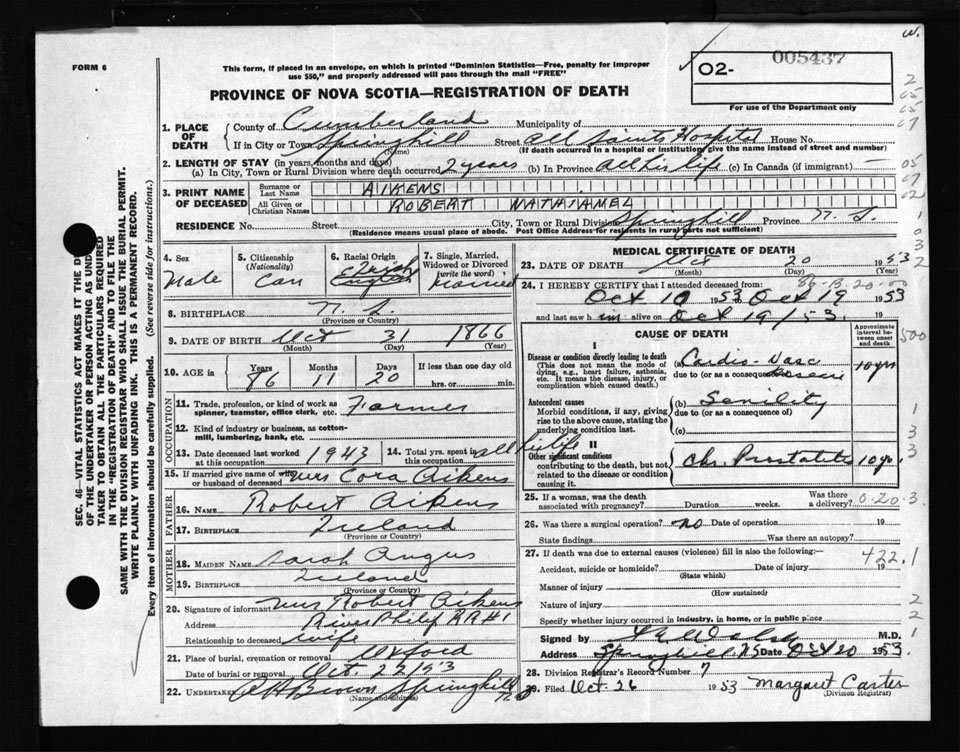 w.
FORM 6
This form, if placed in an envelope, on which is printed "Dominion Statistics—Free, penalty for improper
use $50," and properly addressed will pass through the mail "FREE"
PROVINCE OF NOVA SCOTIA—REGISTRATION OF DEATH
005437
O2-
For use of the Department only
1. PLACE OF DEATH { County of Cumberland Municipality of
If in City or Town Springhill (Name) Street All Saints Hospital House No.
(If death occurred in a hospital or institution, give the name instead of street and number)
2. LENGTH OF STAY (in years, months and days)
(a) In City, Town or Rural Division where death occurred 2 years (b) In Province all his life (c) In Canada (if immigrant) —
3. PRINT NAME OF DECEASED { Surname or Last Name AIKENS
All Given or Christian Names ROBERT NATHIAMEL
RESIDENCE No. Street City, Town or Rural Division Springhill Province N. S.
(Residence means usual place of abode. Post Office Address for residents in rural parts not sufficient)
4. Sex Male
5. Citizenship (Nationality) Can
6. Racial Origin Irish English
7. Single, Married, Widowed or Divorced (write the word) Married
8. BIRTHPLACE N. S.
(Province or Country)
9. DATE OF BIRTH Oct 31 1866
(Month) (Day) (Year)
10. AGE in Years 86 Months 11 Days 20 If less than one day old
hrs. or min.
OCCUPATION
11. Trade, profession, or kind of work as spinner, teamster, office clerk, etc. Farmer
12. Kind of industry or business, as cotton-mill, lumbering, bank, etc.
13. Date deceased last worked at this occupation 1943 14. Total yrs. spent in this occupation all his life
15. If married give name of wife or husband of deceased Mrs Cora Aikens
FATHER
16. NAME Robert Aikens
17. BIRTHPLACE Ireland
(Province or Country)
MOTHER
18. MAIDEN NAME Sarah Angus
19. BIRTHPLACE Ireland
(Province or Country)
20. Signature of informant Mrs Robert Aikens
Address River Philip RR#1
Relationship to deceased wife
21. Place of burial, cremation or removal Oxford
Date of burial or removal Oct. 22/53
22. UNDERTAKER Brown Springhill
(Name and address)
MEDICAL CERTIFICATE OF DEATH
23. DATE OF DEATH Oct 20 1953
(Month) (Day) (Year)
24. I HEREBY CERTIFY that I attended deceased from:
86-B-20-00
Oct 10 1953 to Oct 19 1953
and last saw him alive on Oct 19/53.
CAUSE OF DEATH
Approximate interval between onset and death
I
Disease or condition directly leading to death
(This does not mean the mode of dying, e.g., heart failure, asthenia, etc. It means the disease, injury, or complication which caused death.)
Cardio-Vasc
due to (or as a consequence of) 10 yrs
Antecedent causes
Morbid conditions, if any, giving rise to the above cause, stating the underlying condition last.
(b) Senility
due to (or as a consequence of)
(c)
II
Other significant conditions
contributing to the death, but not related to the disease or condition causing it.
Chr. Prostatitis 10 yrs
25. If a woman, was the death associated with pregnancy? Duration weeks. Was there a delivery?
0-20.3
26. Was there a surgical operation? no Date of operation 19
State findings Was there an autopsy?
27. If death was due to external causes (violence) fill in also the following:—
422.1
Accident, suicide or homicide? Date of injury 19
(State which)
Manner of injury
(How sustained)
Nature of injury
Specify whether injury occurred in industry, in home, or in public place
Signed by Walsh M.D.
Address Springhill NS Date Oct 20 1953.
28. Division Registrar's Record Number 7
29. Filed Oct. 26 1953 Margaret Carter
(Division Registrar)
SEC. 46—VITAL STATISTICS ACT MAKES IT THE
OF THE UNDERTAKER OR PERSON ACTING AS
TAKER TO OBTAIN ALL THE PARTICULARS REQUIRED
IN THE "REGISTRATION OF DEATH" AND TO FILE THE
SAME WITH THE DIVISION REGISTRAR WHO SHALL ISSUE THE BURIAL PERMIT.
WRITE PLAINLY WITH UNFADING INK. THIS IS A PERMANENT RECORD.
Every item of information should be carefully supplied. (See reverse side for instructions.)
2
05
05
67
05
67
02
1
0
3
2
500
1
3
3
2
2
1